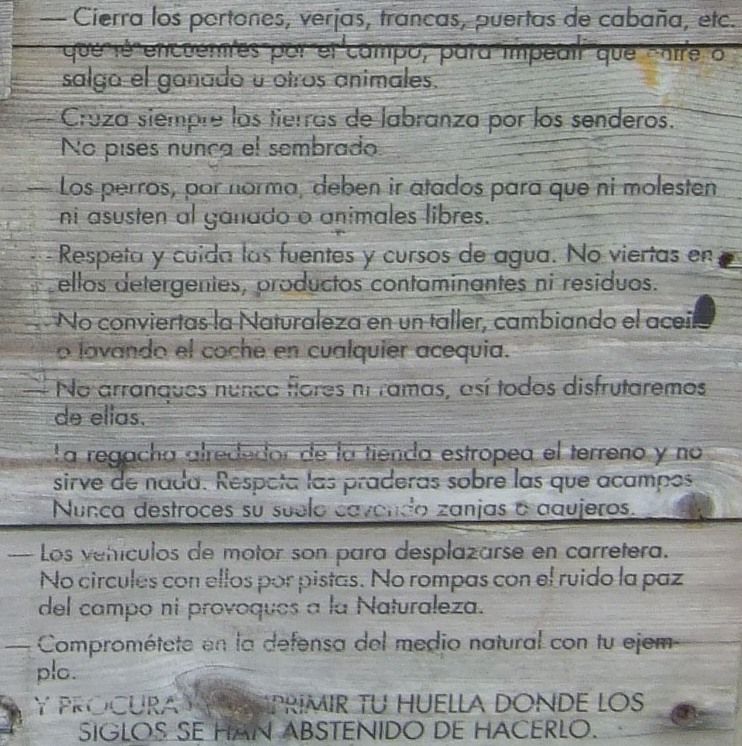 — Cierra los portones, verjas, trancas, puertas de cabaña, etc.
que te encuentres por el campo, para impedir que entre o
salga el ganado u otros animales.
— Cruza siempre las tierras de labranza por los senderos.
No pises nunca el sembrado
— Los perros, por norma, deben ir atados para que ni molesten
ni asusten al ganado o animales libres.
— Respeta y cuida las fuentes y cursos de agua. No viertas en
ellos detergentes, productos contaminantes ni residuos.
— No conviertas la Naturaleza en un taller, cambiando el aceite
o lavando el coche en cualquier acequia.
— No arranques nunca flores ni ramas, así todos disfrutaremos
de ellas.
La regacha alrededor de la tienda estropea el terreno y no
sirve de nada. Respeta las praderas sobre las que acampes
Nunca destroces su suelo cavando zanjas o agujeros.
— Los vehículos de motor son para desplazarse en carretera.
No circules con ellos por pistas. No rompas con el ruido la paz
del campo ni provoques a la Naturaleza.
— Comprométete en la defensa del medio natural con tu ejem-
plo.
Y PROCURA IMPRIMIR TU HUELLA DONDE LOS
SIGLOS SE HAN ABSTENIDO DE HACERLO.